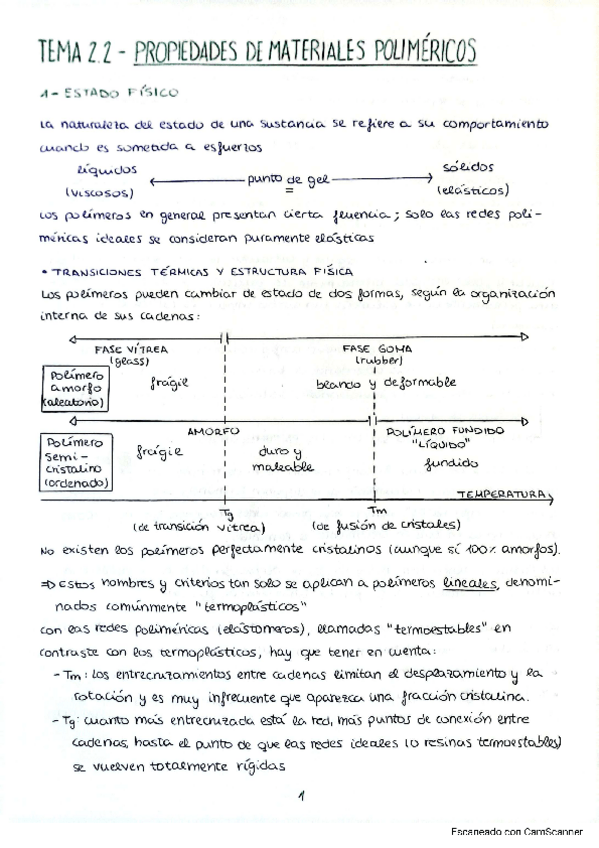 TEMA 2.2 - PROPIEDADES DE MATERIALES POLIMÉRICOS
1- ESTADO FÍSICO
La naturaleza del estado de una sustancia se refiere a su comportamiento
cuando es sometida a esfuerzos
líquidos
(viscosos)
punto de gel
sólidos
(elásticos)
Los polímeros en general presentan cierta fluencia; solo las redes poli-
méricas ideales se consideran puramente elásticas
• TRANSICIONES TÉRMICAS Y ESTRUCTURA FÍSICA
Los polímeros pueden cambiar de estado de dos formas, según la organización
interna de sus cadenas:
FASE VÍTREA
(glass)
FASE GOMA
(rubber)
Polímero
amorfo
(aleatorio)
frágil
blando y deformable
AMORFO
POLÍMERO FUNDIDO
"LÍQUIDO"
Polímero
semi-
cristalino
(ordenado)
frágil
duro y
maleable
fundido
TEMPERATURA
Tg
(de transición vítrea)
Tm
(de fusión de cristales)
No existen los polímeros perfectamente cristalinos (aunque sí 100% amorfos).
⇒ Estos nombres y criterios tan solo se aplican a polímeros lineales, denomi-
nados comúnmente "termoplásticos"
Con las redes poliméricas (elastómeros), llamadas "termoestables" en
contraste con los termoplásticos, hay que tener en cuenta:
- Tm: los entrecruzamientos entre cadenas limitan el desplazamiento y la
rotación y es muy infrecuente que aparezca una fracción cristalina.
- Tg: cuanto más entrecruzada está la red, más puntos de conexión entre
cadenas, hasta el punto de que las redes ideales (o resinas termoestables)
se vuelven totalmente rígidas
1
Escaneado con CamScanner